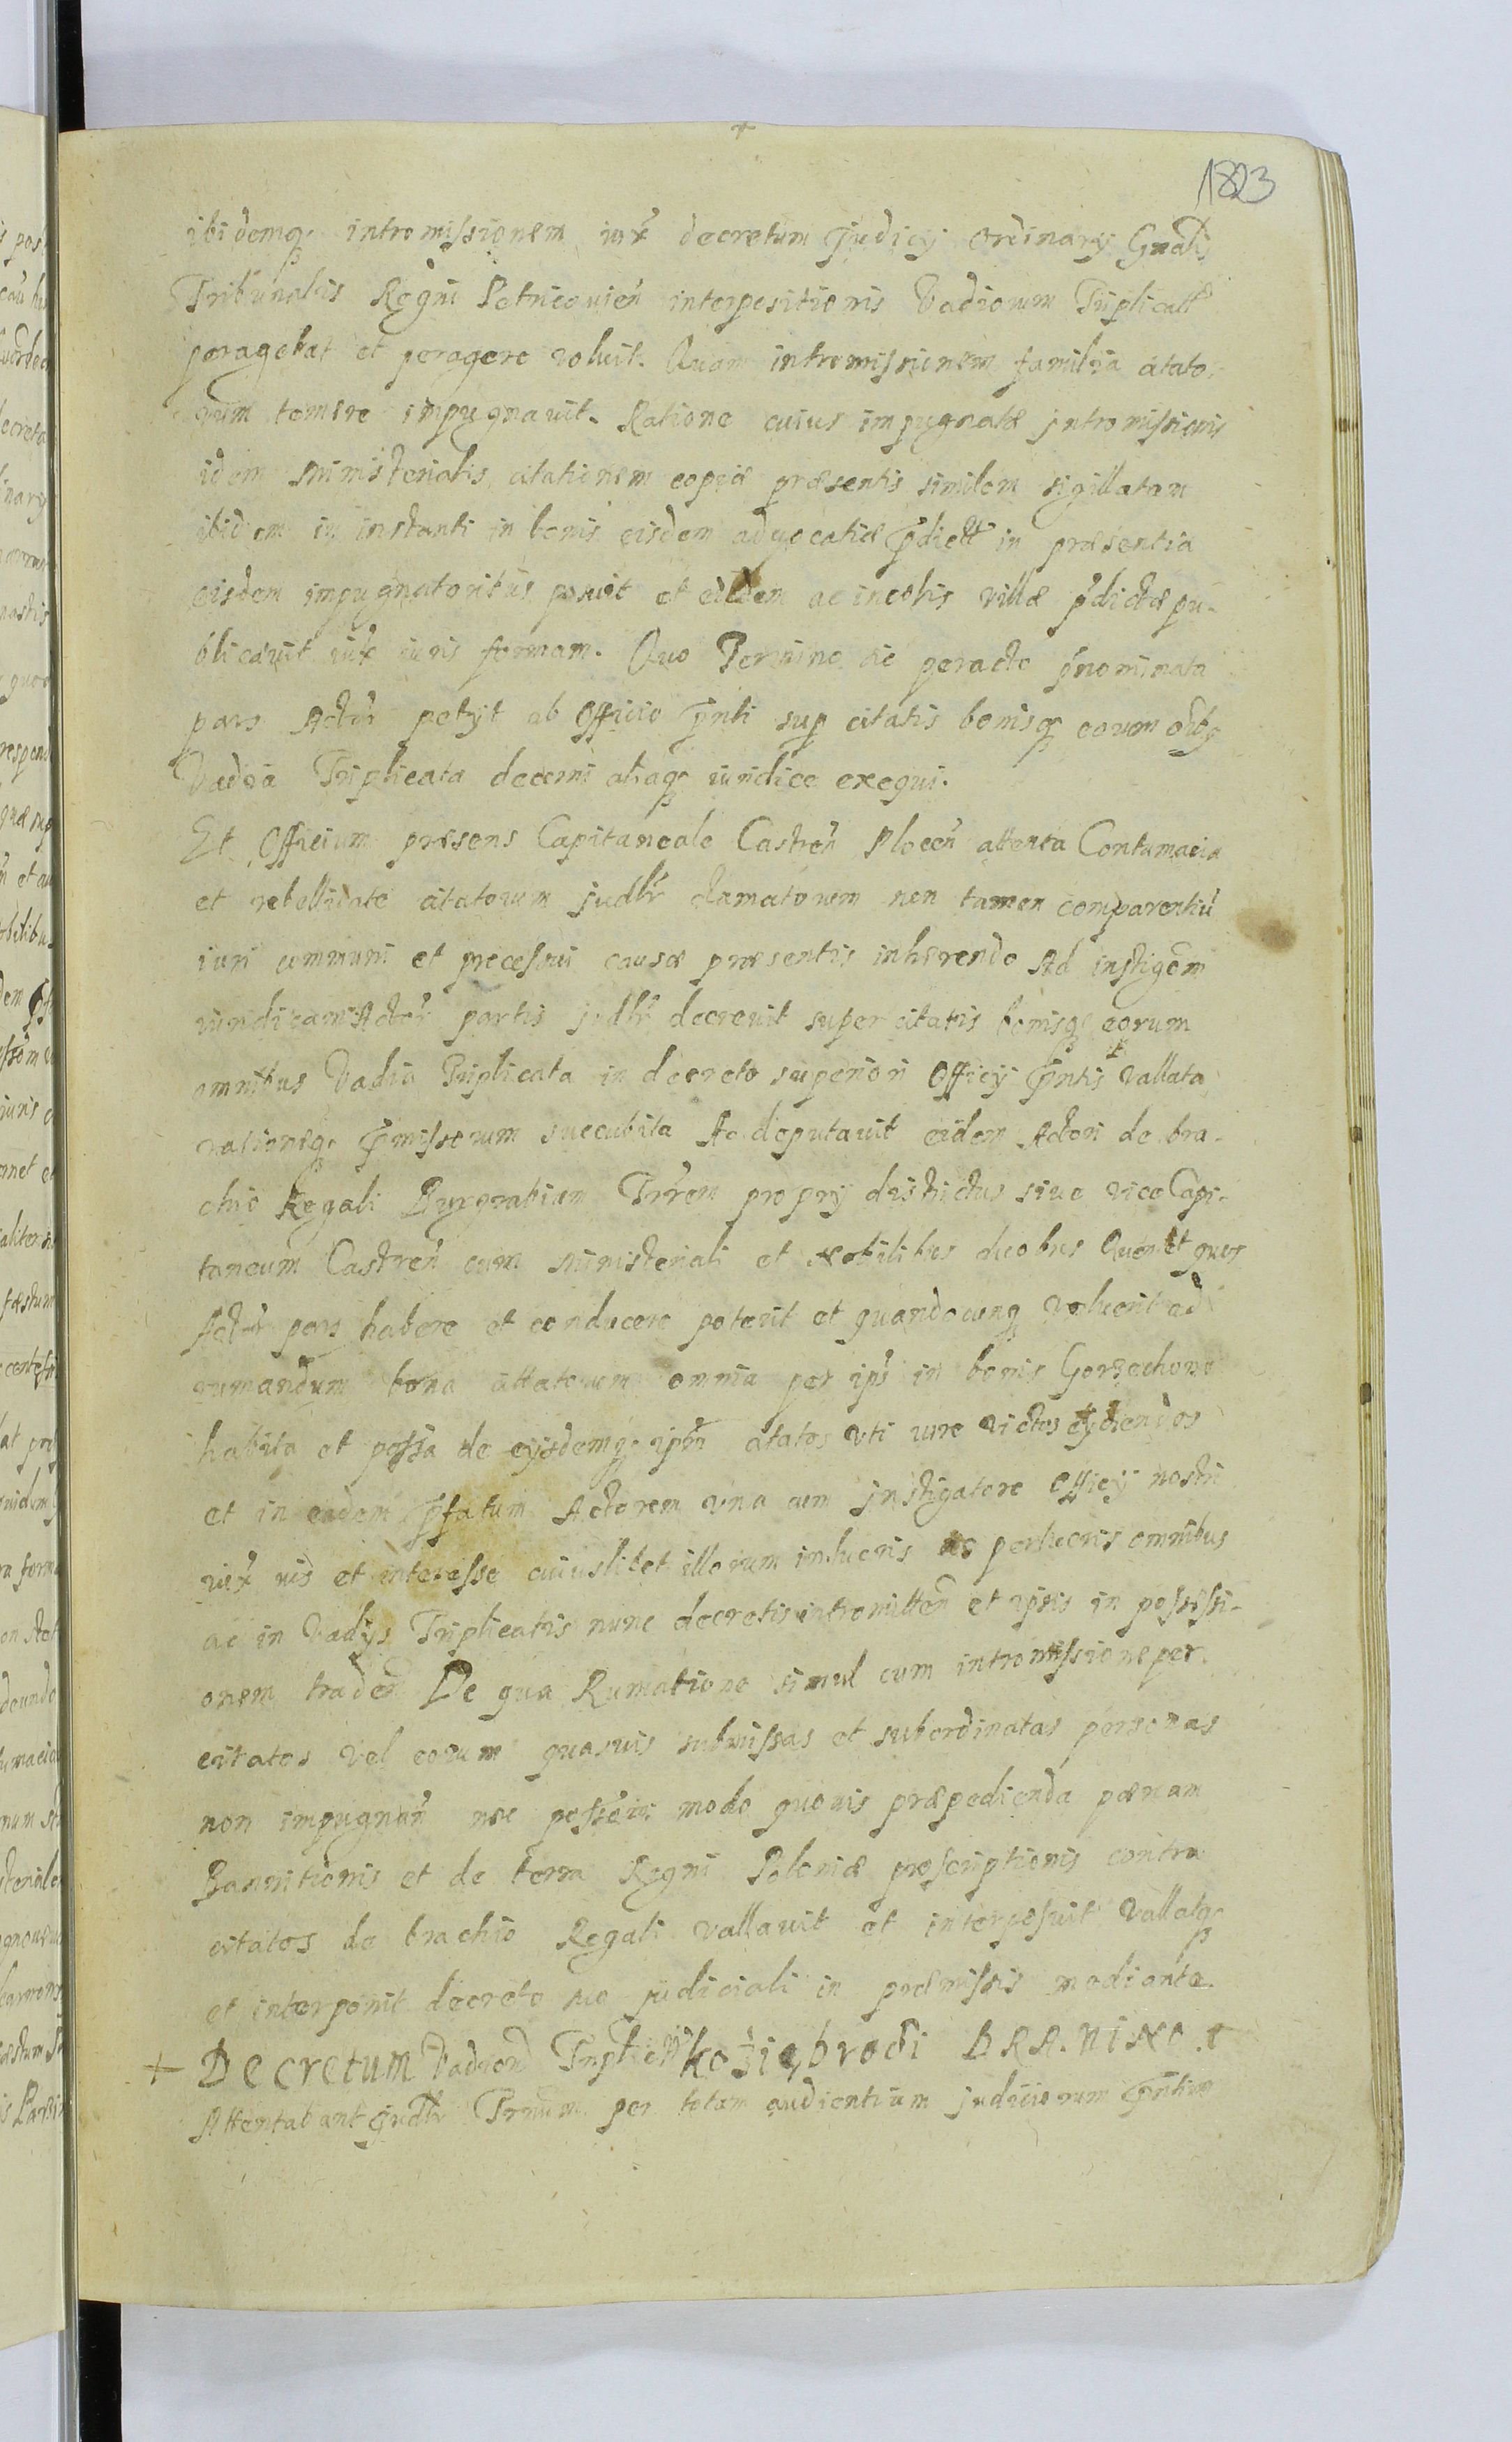 1823
ibidemq, intromissionem iux decretum Judicij Ordinarij Gnalis
Tribunalis Regni Petricouien interpositionis Vadiorum Triplicatt
peragebat et peragere voluit. Quam intromissionem familia citato-
rum temere impugnauit. Ratione cuius impugnatæ jntromissionis
idem Ministerialis citationem copiæ præsentis similem sigillatam
ibidem in instanti in bonis eisdem aduocatiæ pdictt in præsentia
eisdem impugnatoribus posuit et eisdem ac incolis villæ pdictæ pu-
blicauit iux iuris formam. Quo Termino sic peracto pnominata
pars Actor petijt ab Officio pnti sup citatis bonisq eorum oibq
Vadia Triplicata decerni aliaq iuridice exequi.
Et Officium præsens Capitaneale Castren Plocen attenta Contumacia
et rebellitate citatorum judlr clamatorum non tamen comparentiu
iuri communi et processui causæ præsentis inhærendo Ad instigom
iuridicam Actor partis judlr decreuit super citatis bonisq eorum
omnibus Vadia Triplicata in decreto superiori Officij pntis vallata
rationeq pmissorum succubita Ac deputauit eidem Actori de bra-
chio Regali Burgrabium Trrem proprij districtus siue vice Capi-
taneum Castren cum ministeriali et nobilibus duobus Quem et quos
Actor pars habere et conducere poterit et quandocunq voluerit ad
rumandum bona citatorum omnia per ips in bonis Gorzechowo
habita et possa de eijsdemq ipsos citatos vti iure victos eijciendos
et in eadem pfatum Actorem vna cum jnstigatore Officij nostri
iux ius et interesse cuiuslibet illorum in lucris ac perlucris omnibus
ac in Vadijs Triplicatis nunc decretis intromitten et ipsis in possessi-
onem traden De qua Rumatione simul cum intromissione per
citatos vel eorum quasuis submissas et subordinatas personas
non impugnan nec modo quouis præpedienda pænam
Bannitionis et de terra Regni Poloniæ proscriptionis contra
citatos de brachio Regali vallauit et interposuit vallatq
et interponit decreto suo judiciali in præmissis mediante.
+ Decretum Vadiorum Triplicat koziebrodi BRANiNO
Attentabant judlr Trnum per totam audientiam judiciorum pntium